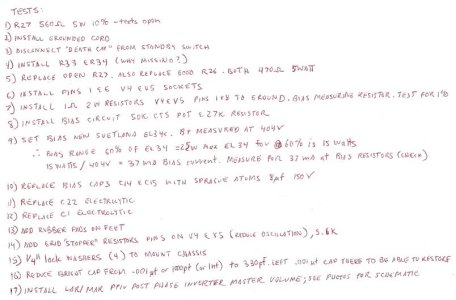 TESTS:
1) R27 560Ω 5W 10% - tests open
2) INSTALL GROUNDED CORD
3) DISCONNECT "DEATH CAP" FROM STANDBY SWITCH
4) INSTALL R33 & R34 (WHY MISSING?)
5) REPLACE OPEN R27, ALSO REPLACE GOOD R26. BOTH 470Ω 5WATT
6) INSTALL PINS 1 & 8 V4 & V5 SOCKETS
7) INSTALL 1Ω 2W RESISTORS V4 & V5 PINS 1&8 TO GROUND. BIAS MEASURING RESISTOR. TEST FOR 1%
8) INSTALL BIAS CIRCUIT 50K CTS POT & 27K RESISTOR
9) SET BIAS NEW SVETLANA EL34S. B+ MEASURED AT 404V
∴ BIAS RANGE 60% OF EL34 = 25W MAX EL34 for @ 60% is 15 WATTS
15 WATTS / 404V = 37MA BIAS CURRENT. MEASURE FOR 37 MA at BIAS RESISTORS (CHECK)
10) REPLACE BIAS CAPS C14 & C15 WITH SPRAGUE ATOMS 8µf 150V
11) REPLACE C22 ELECTROLYTIC
12) REPLACE C1 ELECTROLYTIC
13) ADD RUBBER PADS ON FEET
14) ADD GRID "STOPPER" RESISTORS PIN 5 ON V4 & V5 (REDUCE OSCILLATION), 5.6K
15) 1/4" lock WASHERS (4) TO MOUNT CHASSIS
16) REDUCE BRIGHT CAP FROM .001µf or 1000pf (or 1nf) to 330pf. LEFT .001µf CAP THERE TO BE ABLE TO RESTORE
17) INSTALL LAR/MAR PPIV POST PHASE INVERTER MASTER VOLUME; SEE PHOTOS FOR SCHEMATIC